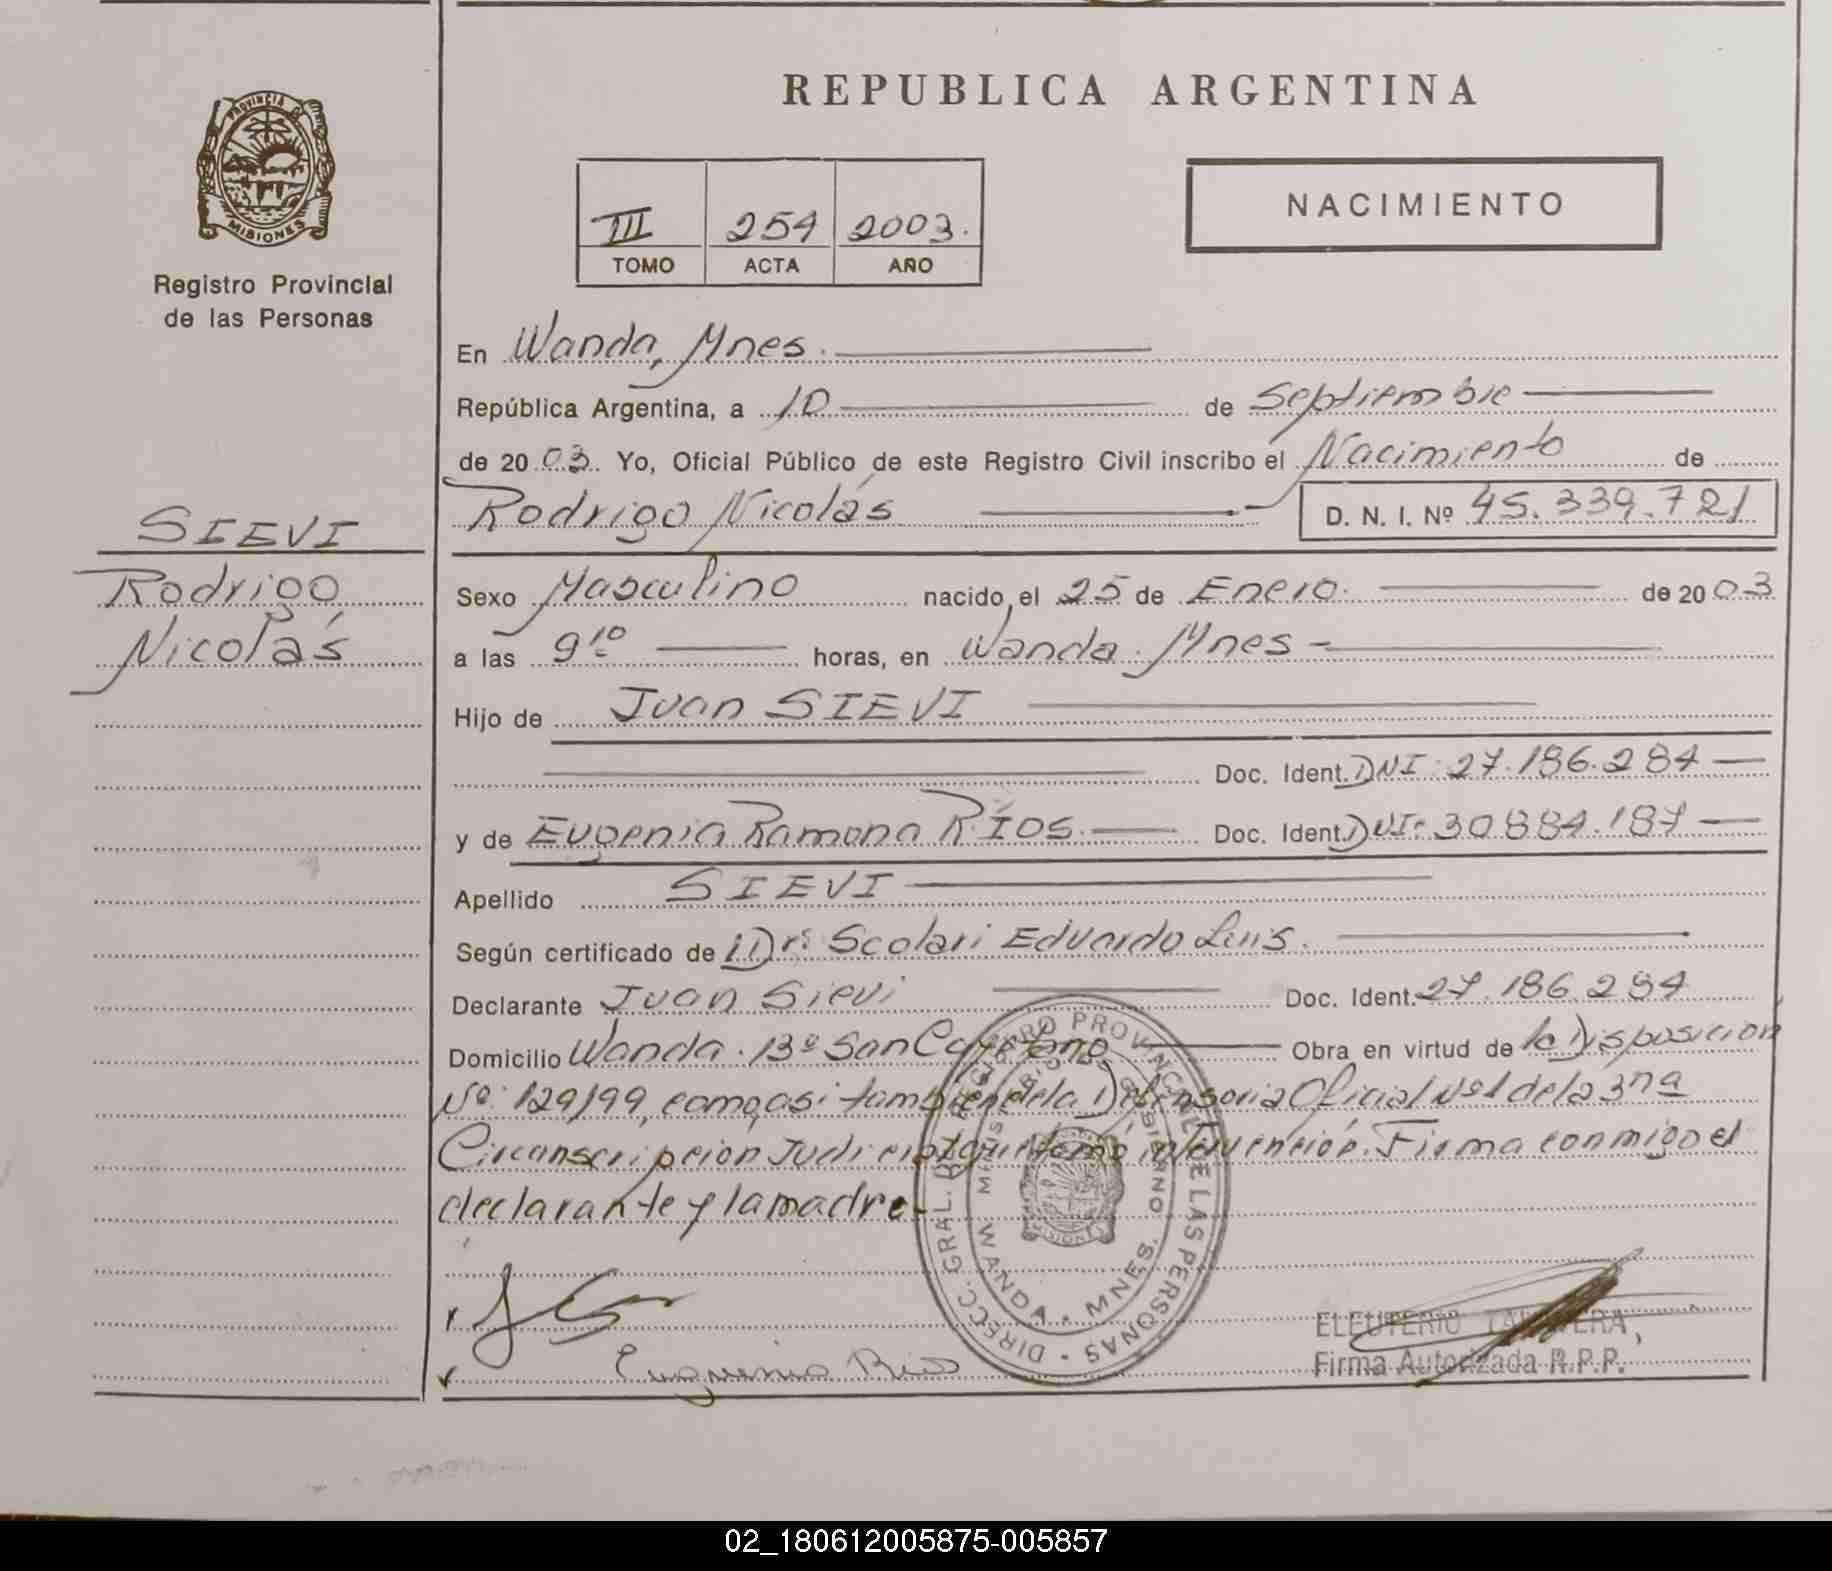 REPUBLICA ARGENTINA
PROVINCIA DE
MISIONES
Registro Provincial
de las Personas
III 254 2003.
TOMO ACTA AÑO
NACIMIENTO
En Wanda, Mnes.
República Argentina, a 10 de Septiembre
de 2003. Yo, Oficial Público de este Registro Civil inscribo el Nacimiento de
Rodrigo Nicolás D. N. I. Nº 45.339.721
SIEVI
Rodrigo
Nicolás
Sexo Masculino nacido el 25 de Enero. de 2003
a las 9¹⁰ horas, en Wanda. Mnes -
Hijo de Juan SIEVI
Doc. Ident. DNI: 27.186.284
y de Eugenia Ramona RÍOS. Doc. Ident. DNI: 30884.187
Apellido SIEVI
Según certificado de Dr. Scolari Eduardo Luis.
Declarante Juan Sievi Doc. Ident. 27.186.284
Domicilio Wanda. Bº San Cayetano Obra en virtud de la Disposición
Nº: 129/99, como asi tambien de la Defensoria Oficial Nº1 de la 3ra
Circunscripcion Judicial que tomó intervención. Firma conmigo el
declarante y la madre.-
DIRECC. GRAL. REGISTRO PROVINCIAL DE LAS PERSONAS
WANDA - MNES.
Eugenia Rios
ELEUTERIO
Firma Autorizada R.P.P.
02_180612005875-005857